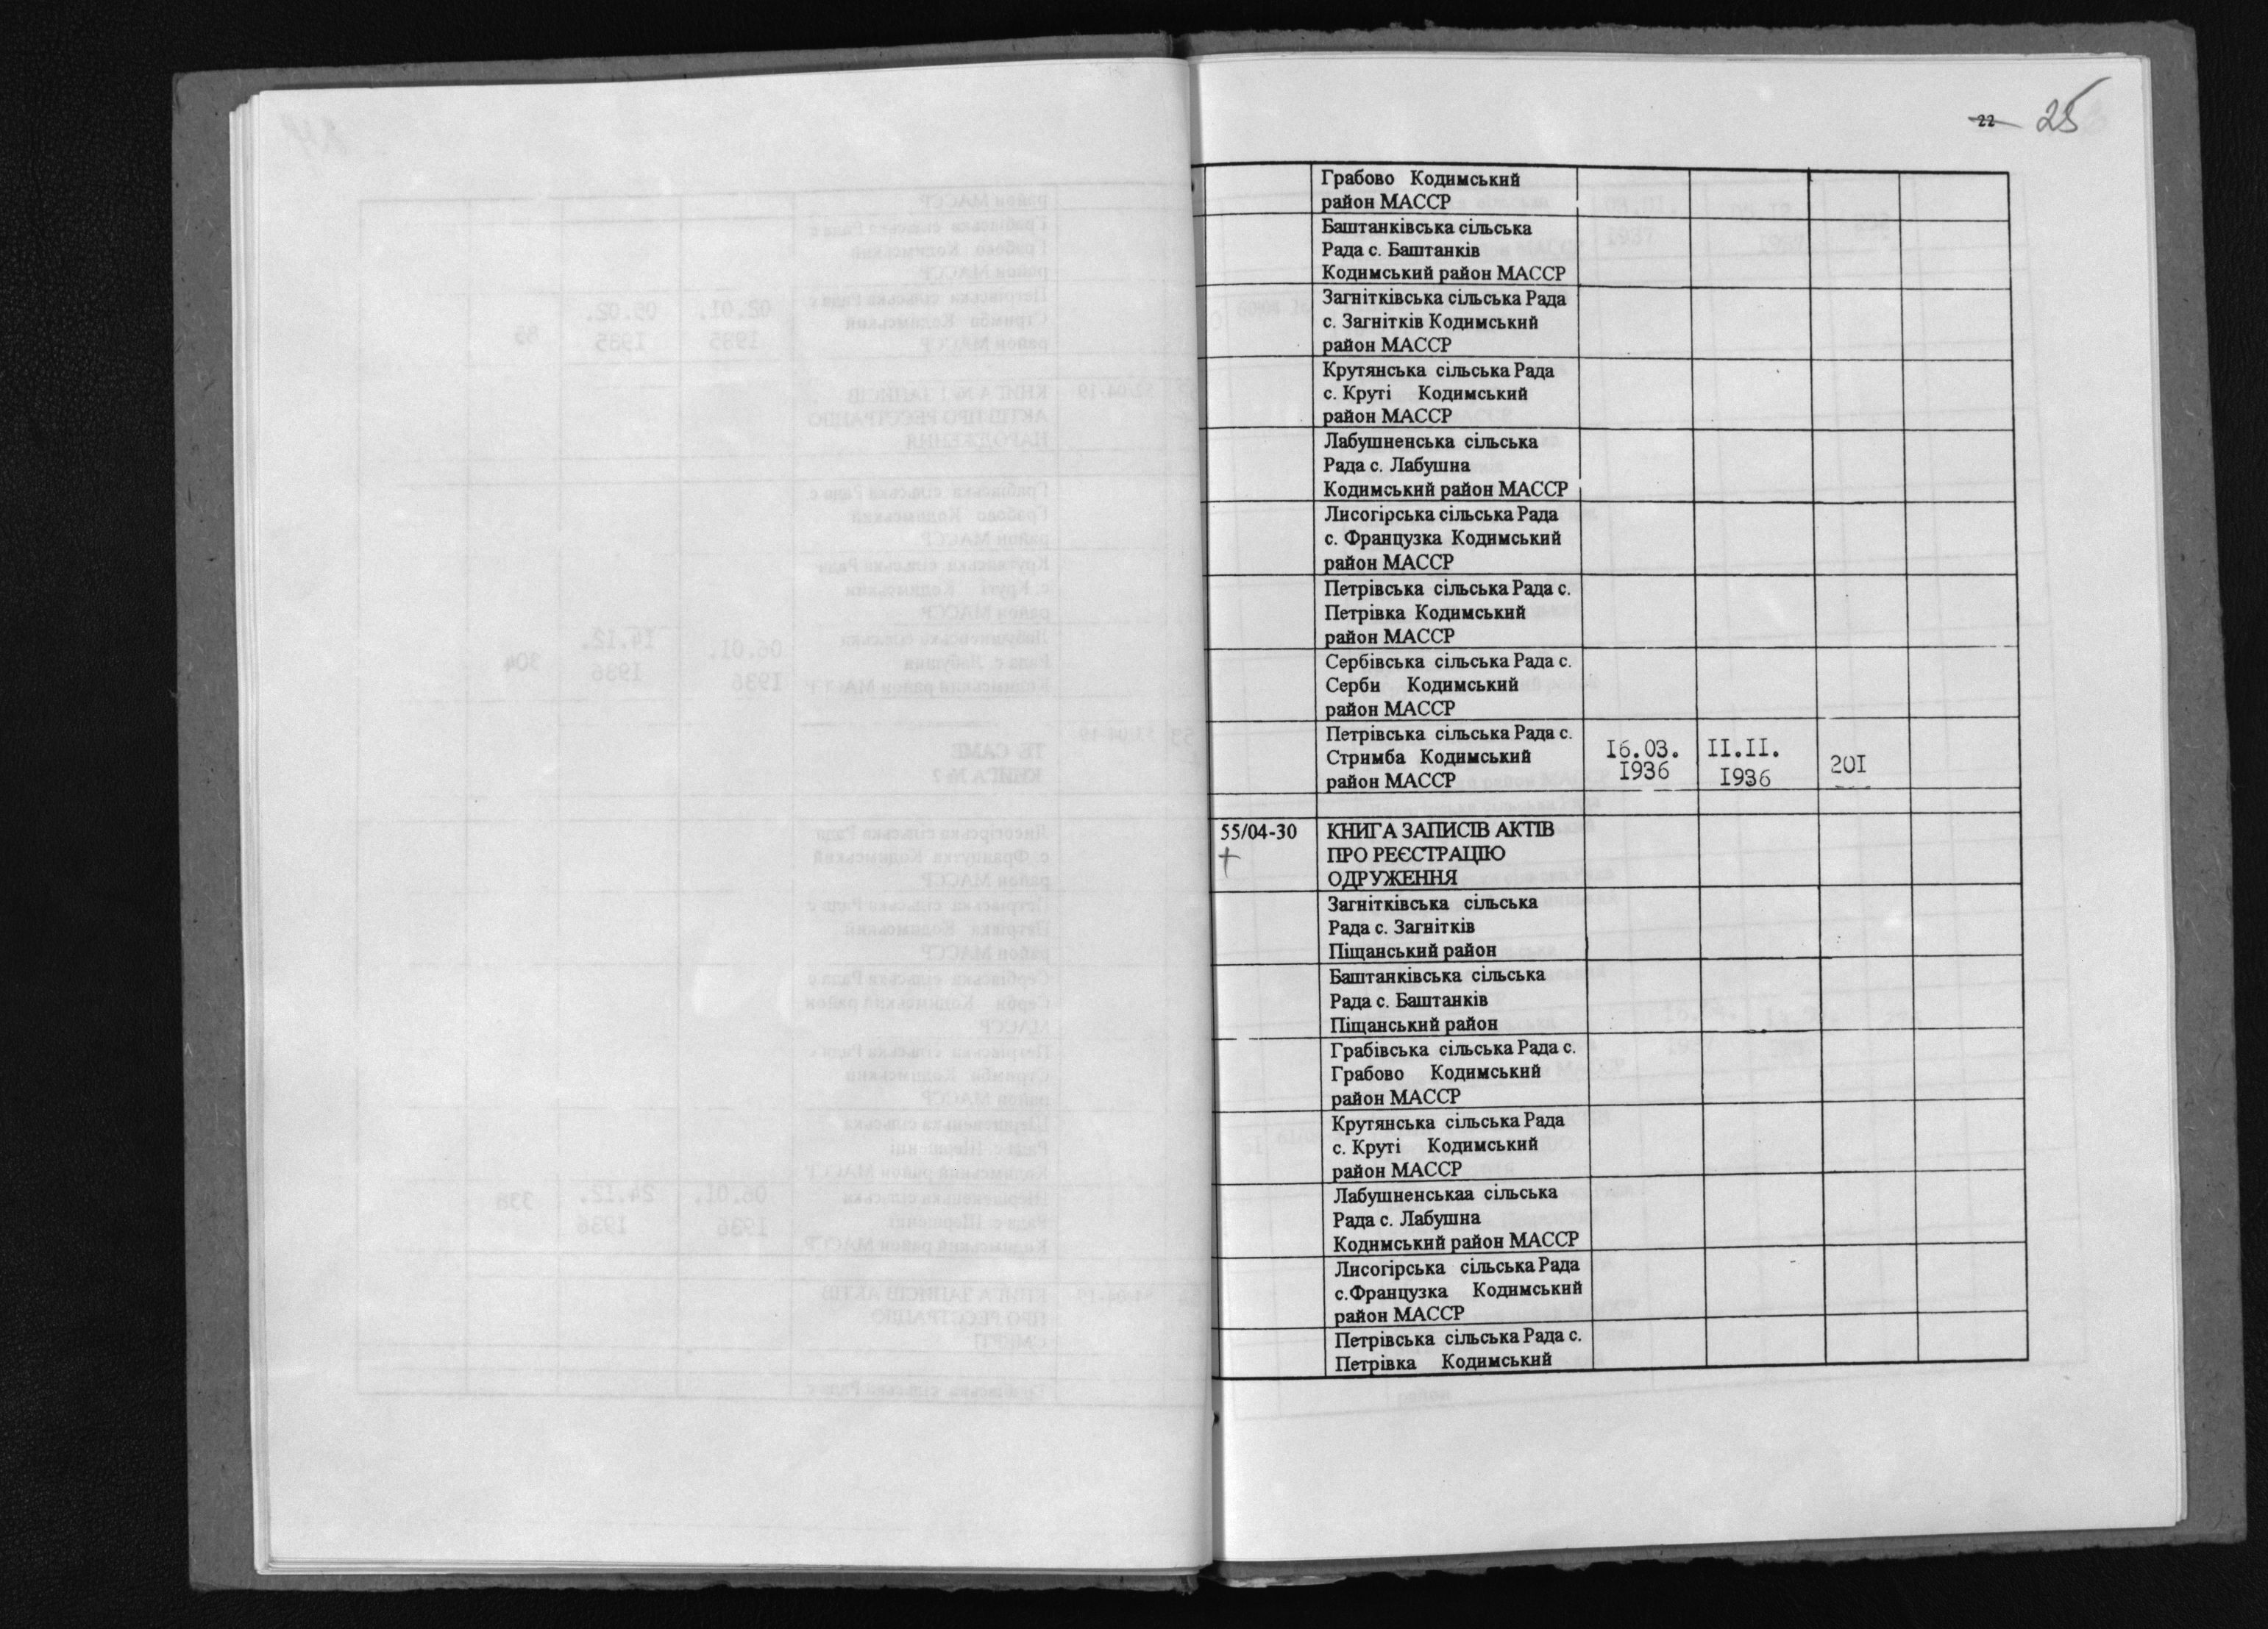 22 25
Грабово Кодимський
район МАССР
Баштанківська сільська
Рада с. Баштанків
Кодимський район МАССР
Загнітківська сільська Рада
с. Загнітків Кодимський
район МАССР
Крутянська сільська Рада
с. Круті Кодимський
район МАССР
Лабушненська сільська
Рада с. Лабушна
Кодимський район МАССР
Лисогірська сільська Рада
с. Французка Кодимський
район МАССР
Петрівська сільська Рада с.
Петрівка Кодимський
район МАССР
Сербівська сільська Рада с.
Серби Кодимський
район МАССР
Петрівська сільська Рада с.
Стримба Кодимський
район МАССР
16.03.
1936
II.II.
1936
20I
55/04-30
+
КНИГА ЗАПИСІВ АКТІВ
ПРО РЕЄСТРАЦІЮ
ОДРУЖЕННЯ
Загнітківська сільська
Рада с. Загнітків
Піщанський район
Баштанківська сільська
Рада с. Баштанків
Піщанський район
Грабівська сільська Рада с.
Грабово Кодимський
район МАССР
Крутянська сільська Рада
с. Круті Кодимський
район МАССР
Лабушненськаа сільська
Рада с. Лабушна
Кодимський район МАССР
Лисогірська сільська Рада
с.Французка Кодимський
район МАССР
Петрівська сільська Рада с.
Петрівка Кодимський